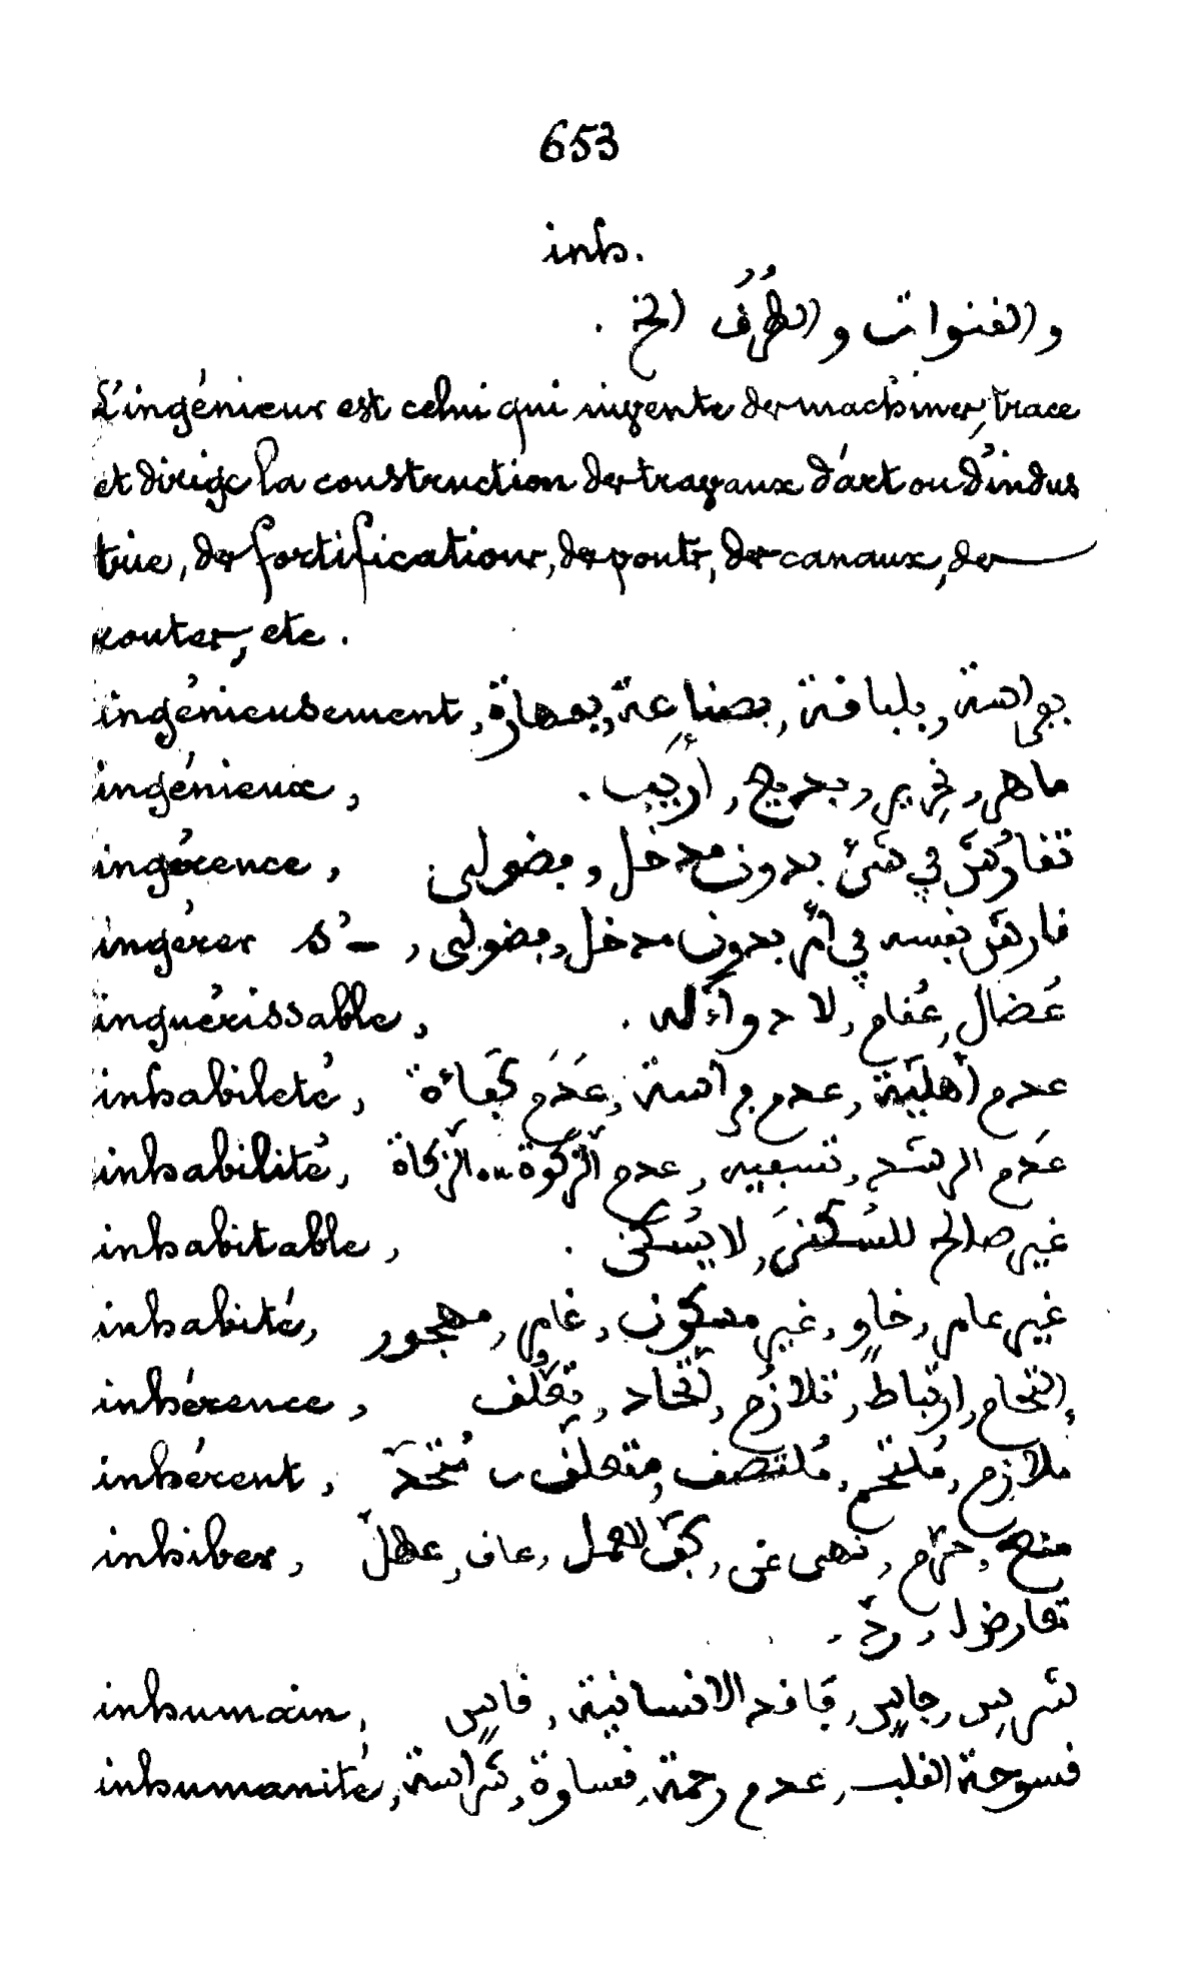 653
inh.
والقنوات والطُرُق الخ .
L'ingénieur est celui qui invente des machines, trace
et dirige la construction des travaux d'art ou d'indus
trie, des fortifications, des ponts, des canaux, des
routes, etc.
ingénieusement, بفراسة, بلباقة, بصناعة, بمهارة
ingénieux, ماهر, نحرير, أريب.
ingérence, في شيء بدون مدخل, فضولي
ingérer s'–, نفسه في أمر بدون مدخل, فضولي
inguérissable, عُضال, عُقام, لا دواءَ له .
inhabileté, عدم أهليّة, عدم فراسة, عَدَم كفاءة
inhabilité, عَدَم الرشد, تسفيه, عدم الزكوة ou الزكاة
inhabitable, غير صالح للسُكنىَ, لا يُسكن .
inhabité, غير عامر, خاوٍ, غير مسكون, غامر, مهجور
inhérence, إلتحام, ارتباط, تلازُم, اتّحاد, تعلّق
inhérent, ملازم, مُلتحم, مُلتصق, متعلّق ب مُتّحدّ
inhiber, منع, حرّم, نهى عن, كفّ العمل, عاق, عطلّ
تعارض ل, ردّ .
inhumain, شريس, جابر, فاقد الانسانية, قاسٍ
inhumanité, قسوحة القلب, عدم رحمة, قساوة, شراسة